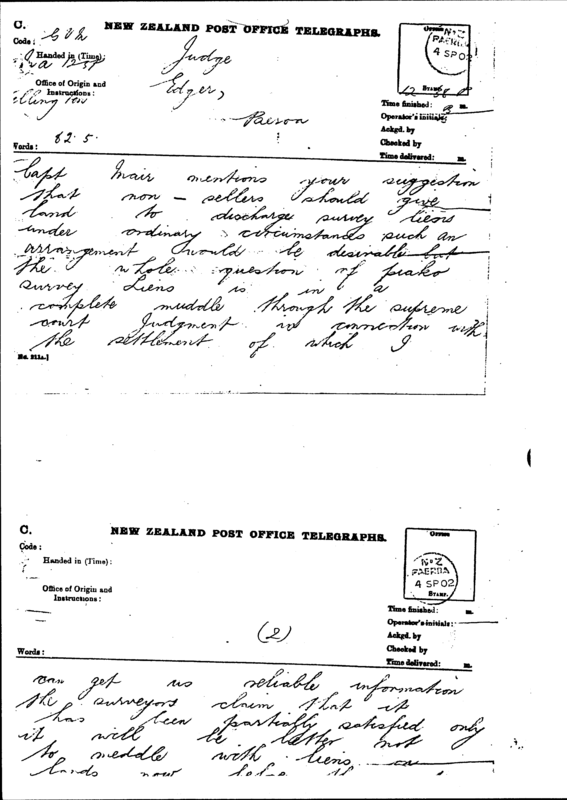 C. NEW ZEALAND POST OFFICE TELEGRAPHS.
Code: GVM
Handed in (Time):
Office of Origin and
Instructions:
Judge
Edger,
Paeroa
Office
N.Z
PAEROA
4 SP 02
STAMP.
Time finished: m.
Operator's initials:
Ackgd. by
Checked by
Time delivered: m.
Words: 82.5.
Capt Mair mentions your suggestion
that non - sellers should give
land to discharge survey liens
under ordinary circumstances such an
arrangement would be desirable but
the whole question of piako
survey Liens is in a
complete muddle through the supreme
court Judgment in connection with
the settlement of which I
No. 211A.]
C. NEW ZEALAND POST OFFICE TELEGRAPHS.
Code:
Handed in (Time):
Office of Origin and
Instructions:
Office
N.Z
PAEROA
4 SP 02
STAMP.
Time finished: m.
Operator's initials:
Ackgd. by
Checked by
Time delivered: m.
(2)
Words:
can get us reliable information
the surveyors claim that it
has been partially satisfied only
it will be better not
to meddle with liens on
lands now